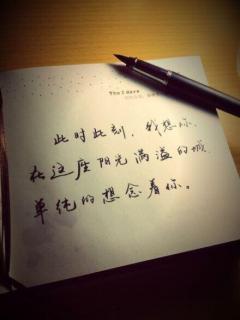 此时此刻，我想你，
在这座阳光满溢的城
单纯的想念着你。